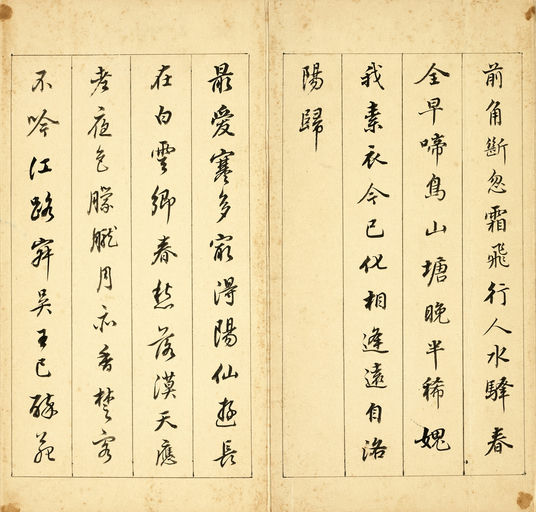 前角斷忽霜飛行人水驛春
全早啼鳥山塘晚半稀媿
我素衣今已化相逢遠自洛
陽歸
最愛寒多最得陽仙遊長
在白雲鄉春愁落漠天應
老夜色朦朧月亦香楚客
不吟江路寂吳王已醉苑